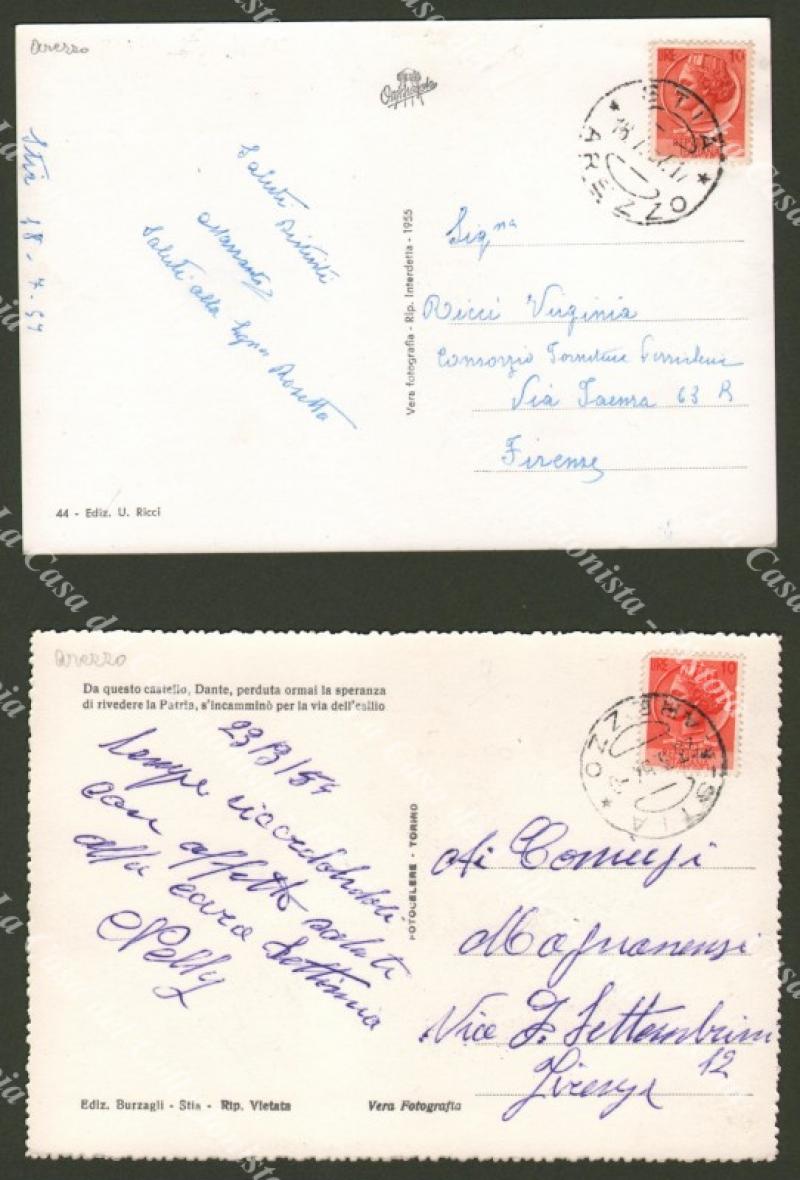 Arezzo
LIRE 10
STIA
AREZZO
Stia 18-7-57
Saluti Distinti
Saluti alla Signa Rosetta
Vera fotografia - Rip. Interdetta - 1955
Signa
Ricci Virginia
Consorzio
Via Faenza 63 R
Firenze
44 - Ediz. U. Ricci
Arezzo
LIRE 10
AREZZO
STIA
Da questo castello, Dante, perduta ormai la speranza
di rivedere la Patria, s'incamminò per la via dell'esilio
23/3/54
Sempre ricordandoli
con affetto saluti
alla cara Settimia
Nelly
FOTOCELERE - TORINO
Ai Coniugi
Magnanensi
Via L. Settembrini
12
Firenze
Ediz. Burzagli - Stia - Rip. Vietata
Vera Fotografia